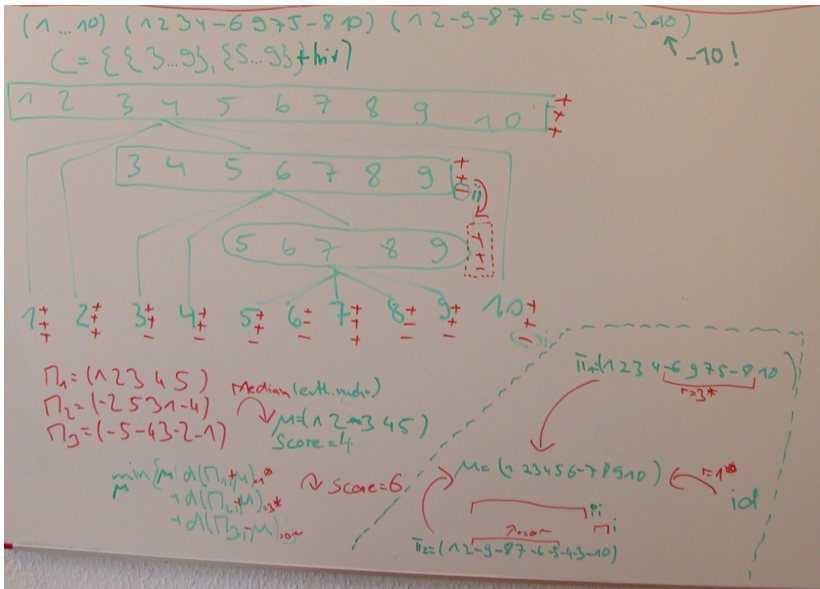 (1 ... 10) (1 2 3 4 -6 9 7 5 -8 10) (1 2 -9 -8 7 -6 -5 -4 -3 -10)
↑ -10!
C = {{3...9}, {5...9} + triv}
1 2 3 4 5 6 7 8 9 10 + + +
3 4 5 6 7 8 9 + + - ii
5 6 7 8 9 + + -
1 + + + 2 + + + 3 + + - 4 + + - 5 + + - 6 + - - 7 + + + 8 + - - 9 + + - 10 + + - i
Π1 = (1 2 3 4 5)
Π2 = (-2 5 3 1 -4)
Π3 = (-5 -4 3 -2 -1)
μ = (1 2 -3 4 5)
Score = 4
min {μ | d(Π1, μ)
+ d(Π2, μ) .3*
+ d(Π3, -μ)
Score = 6
Π1 = (1 2 3 4 -6 9 7 5 -8 10)
r=3*
μ = (1 2 3 4 5 6 -7 8 9 10)
r=1*
id
ii
i
Π2 = (1 2 -9 -8 7 -6 -5 -4 -3 -10)